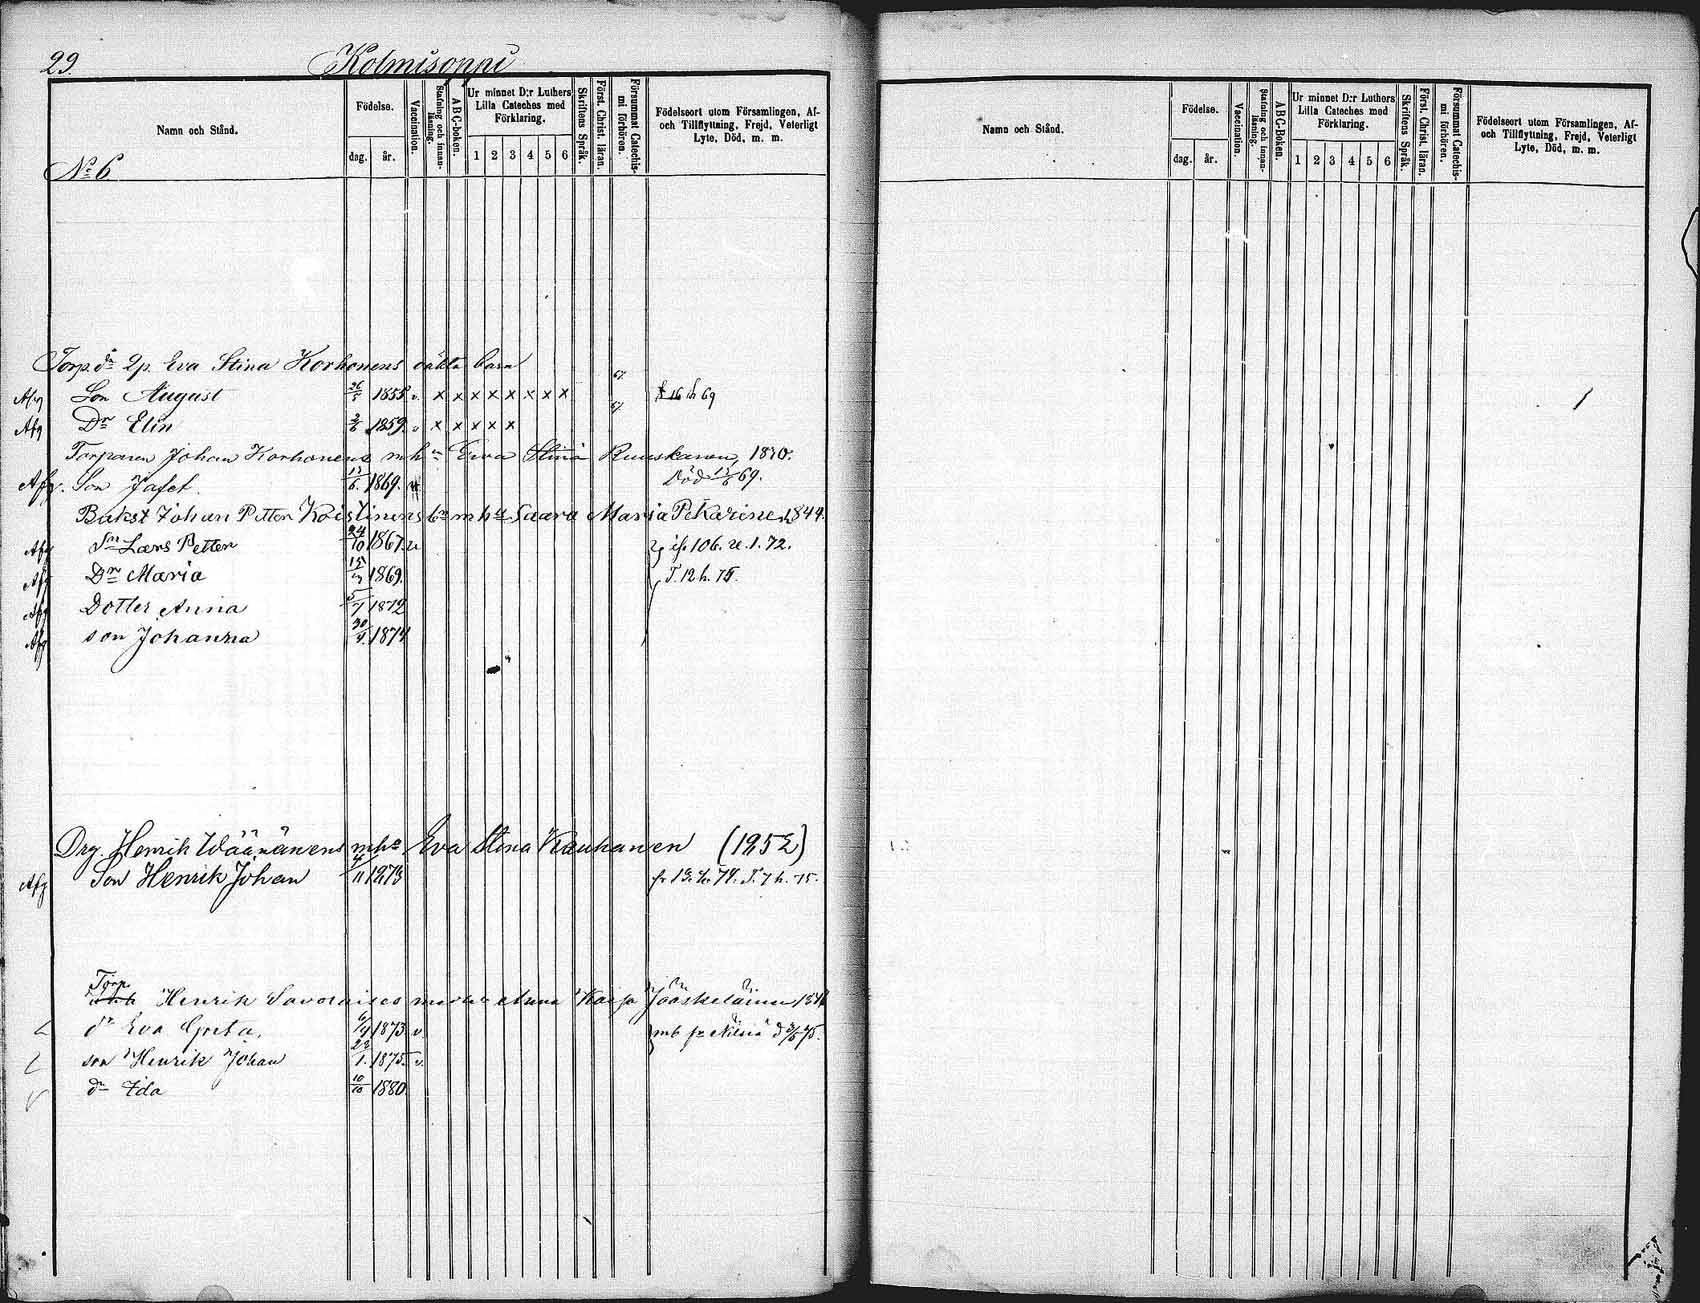 29.
Kolmisoppi
Namn och Stånd.
Födelse.
dag. år.
Vaccination.
Stafning och innan-läsning.
ABC-boken.
Ur minnet D:r Luthers Lilla Cateches med Förklaring.
1 2 3 4 5 6
Skriftens Språk.
Först. Christ. läran.
Försummat Catechis-mi förhören.
Födelseort utom Församlingen, Af- och Tillflyttning, Frejd, Veterligt Lyte, Död, m. m.
No 6
Torp. dr 2p. Eva Stina Korhonens oäkta barn
Afg Son August 26/5 1855 v. x x x x x x x x 67. 16 h 69
Afg Dr Elin 2/6 1859. v x x x x x 67
Torparen Johan Korhonens m h Eva Stina Ruuskanen, 1830.
Afg. Son Jafet. 13/6. 1869. Död 69.
Bakst Johan Petter Koistinens bn m h u Saara Maria Pekarinen 1844.
Afg Sn Lars Petter 24/10 1867. v ifr 106. v. 1. 72.
Afg Dr Maria 1869. T. 12 h. 75.
Afg Dotter Anna 5/1 1872
Afg son Johanna 30/4. 1874
Drg. Henrik Wäänänens m h a Eva Stina Kauhanen (1852)
Afg Son Henrik Johan 4/11 1873 fr 13. h. 74. T. 7 h. 75.
Torp Henrik Savolaises med Anna Kaisa Jääskeläinen
dr Eva Greta. 6/4 1873 v. mb fr Nilsiä d 75.
son Henrik Johan 22/1. 1875. v.
dr Ida 10/10 1880
Namn och Stånd.
Födelse.
dag. år.
Vaccination.
Stafning och innan-läsning.
ABC-Boken.
Ur minnet D:r Luthers Lilla Cateches med Förklaring.
1 2 3 4 5 6
Skriftens Språk.
Först Christ. läran.
Försummat Catechis-mi förhören.
Födelseort utom Församlingen, Af- och Tillflyttning, Frejd, Veterligt Lyte, Död, m. m.